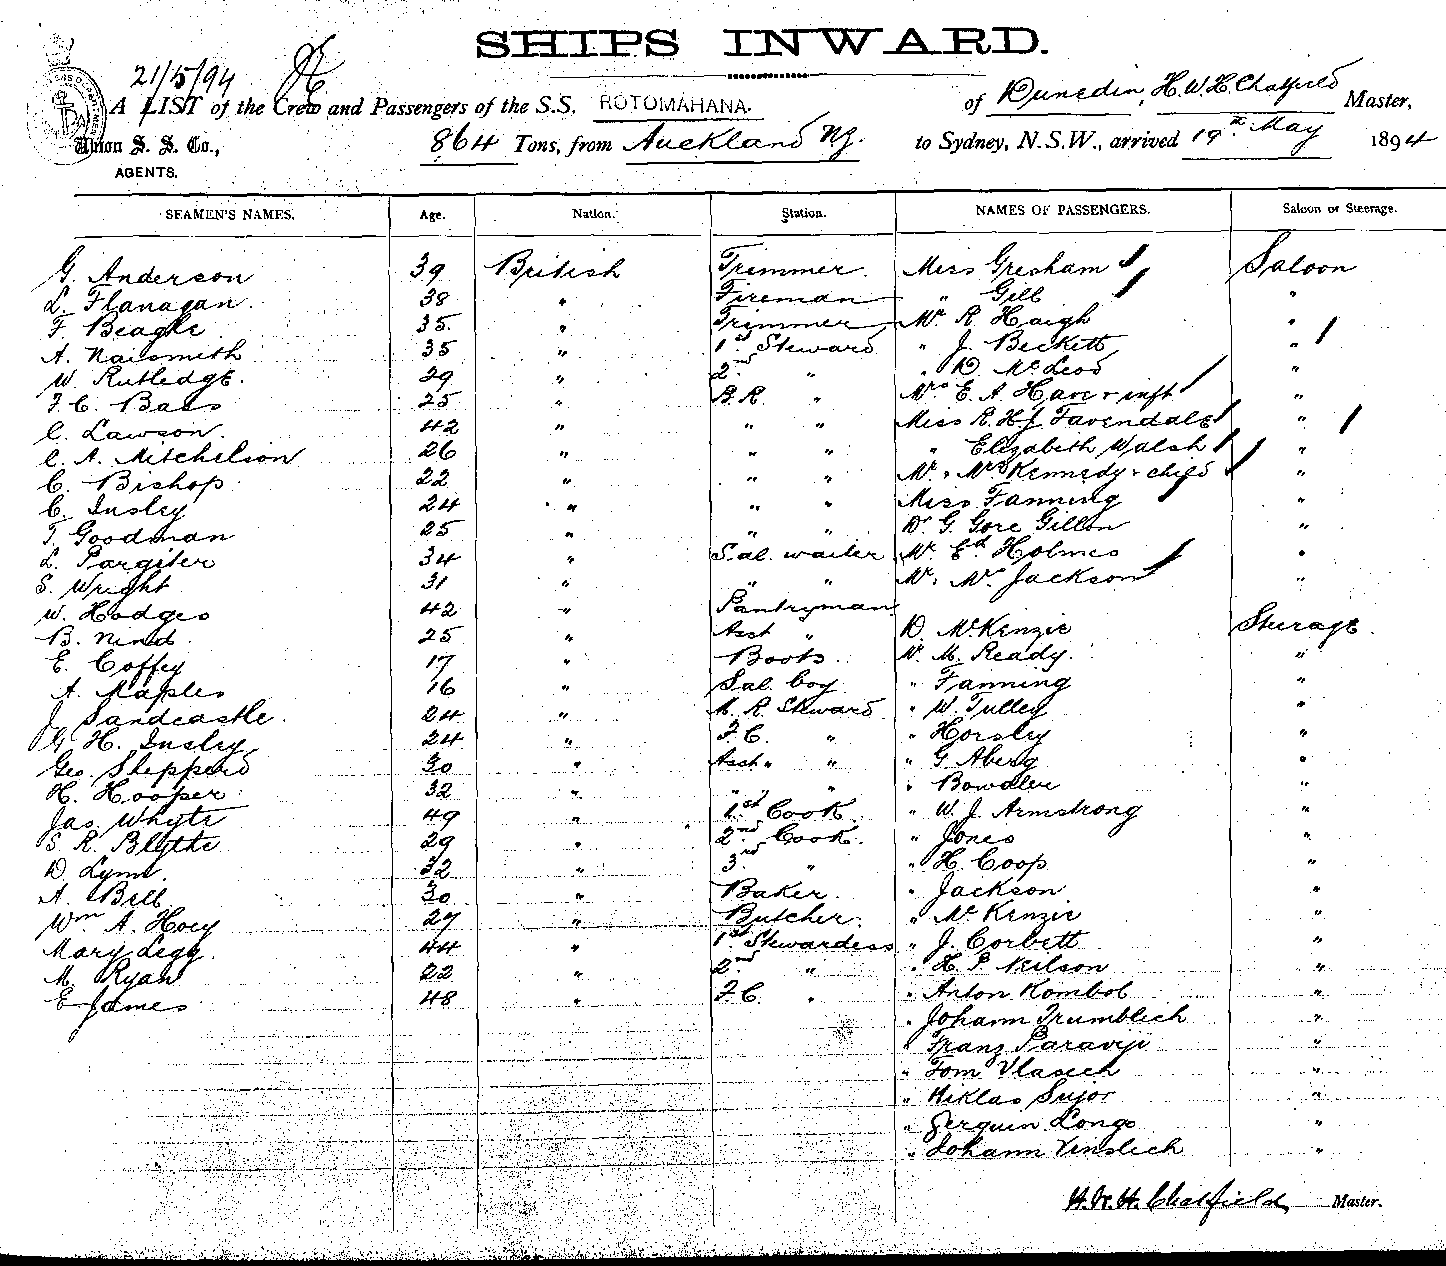 SHIPS INWARD.
21/5/94
A LIST of the Crew and Passengers of the S.S. ROTOMAHANA. of Dunedin, H. W. H. Chatfield Master,
Union S. S. Co., 864 Tons, from Auckland NZ. to Sydney, N.S.W., arrived 19th May 1894
AGENTS.
SEAMEN'S NAMES. Age. Nation. Station. NAMES OF PASSENGERS. Saloon or Steerage.
G. Anderson 39 British Trimmer. Miss Gresham Saloon
L. Flanagan 38 " Fireman " Gill "
F. Beagle 35 " Trimmer Mr R Haigh "
A. Naismith 35 " 1st Steward " J. Beckett "
W. Rutledge. 29 " 2nd " " D. McLeod "
F. C. Bass 25 " B.R. " Mrs E. A. Hare & inft "
C. Lawson. 42 " " " Miss R. H. J. Favendale "
C. A. Mitchelson 26 " " " " Elizabeth Walsh "
C. Bishop 22 " " " Mr & Mrs Kennedy & child "
C. Insley 24 " " " Miss Fanning "
T. Goodman 25 " " " Dr G. Gore Gillon "
L. Pargiter 34 " Sal. waiter Mr Ed Holmes "
S. Wright 31 " " " Mr & Mrs Jackson "
W. Hodges 42 " Pantryman
B. Nind 25 " Asst " D. McKenzie Steerage.
E. Coffey 17 " Boots W. M. Ready. "
A. Maples 16 " Sal. boy " Fanning "
J. Sandcastle. 24 " M. R. Steward " W. Tulley "
G. H. Insley 24 " F.C. " " Horsley "
Geo. Shepperd 30 " Asst " " " G. Aberg "
H. Hooper 32 " " " " Bowdler "
Jas. Whyte 49 " 1st Cook " W. J. Armstrong "
S. R. Blythe 29 " 2nd Cook. " Jones "
D. Lynn. 32 " 3rd " " H. Coop "
A. Bell 30 " Baker. " Jackson "
Wm A. Hoey 27 " Butcher. " McKenzie "
Mary Legg. 44 " 1st Stewardess " J. Corbett "
M. Ryan 22 " 2nd " " H. P. Neilson "
E. James 48 " F.C. " " Anton Kombol "
" Johann Trumblich "
" Franz "
" Tom Vlasich "
" Niklas Sujor "
" Longo "
" Johann "
H. W. H. Chatfield Master.